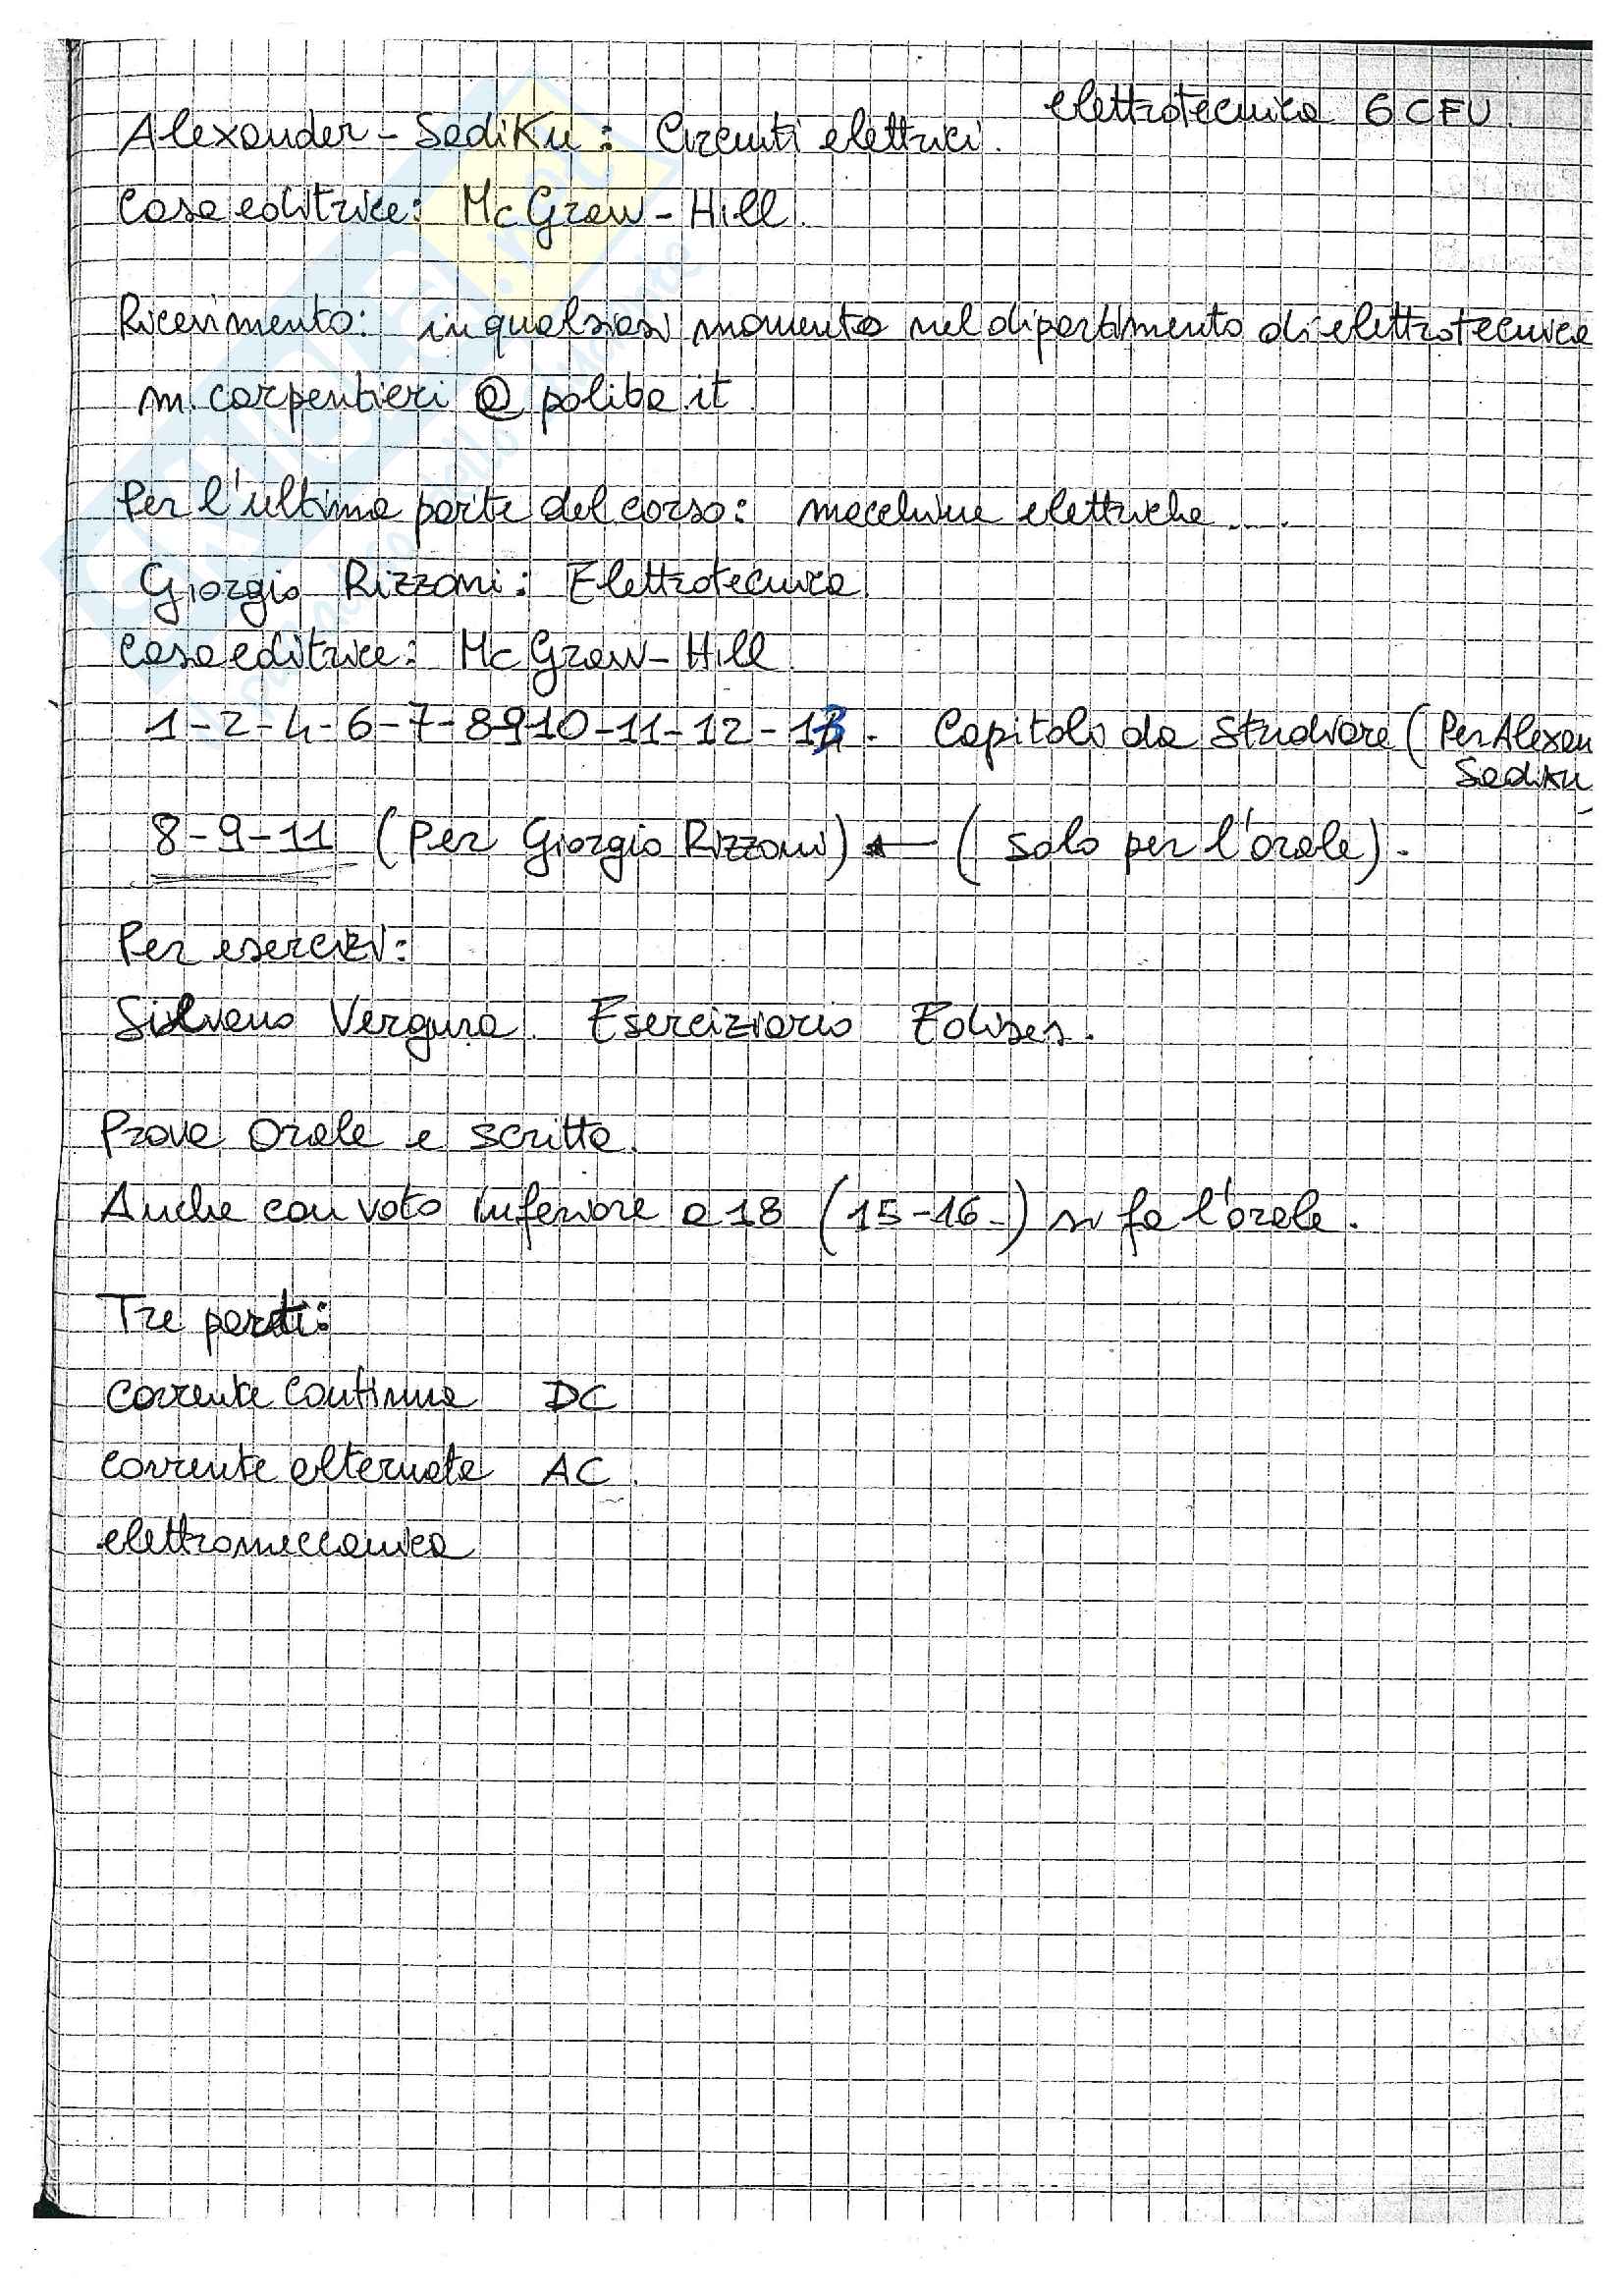 elettrotecnica 6 CFU.
Alexander - SadiKu: Circuiti elettrici.
Casa editrice: Mc Graw - Hill.
Ricevimento: in qualsiasi momento nel dipartimento di elettrotecnica
m. carpentieri @ poliba.it
Per l'ultima parte del corso: macchine elettriche ....
Giorgio Rizzoni: Elettrotecnica
Casa editrice: Mc Graw - Hill
1 - 2 - 4 - 6 - 7 - 8 - 9 - 10 - 11 - 12 - 13. Capitolo da studiare (Per Alexan
SadiKu
8 - 9 - 11 (Per Giorgio Rizzoni) ← (solo per l'orale).
Per esercizi:
Silvano Vergura. Eserciziario Edises.
Prova Orale e scritta.
Anche con voto inferiore a 18 (15-16-) si fa l'orale.
Tre parti:
corrente continua DC
corrente alternata AC.
elettromeccanica